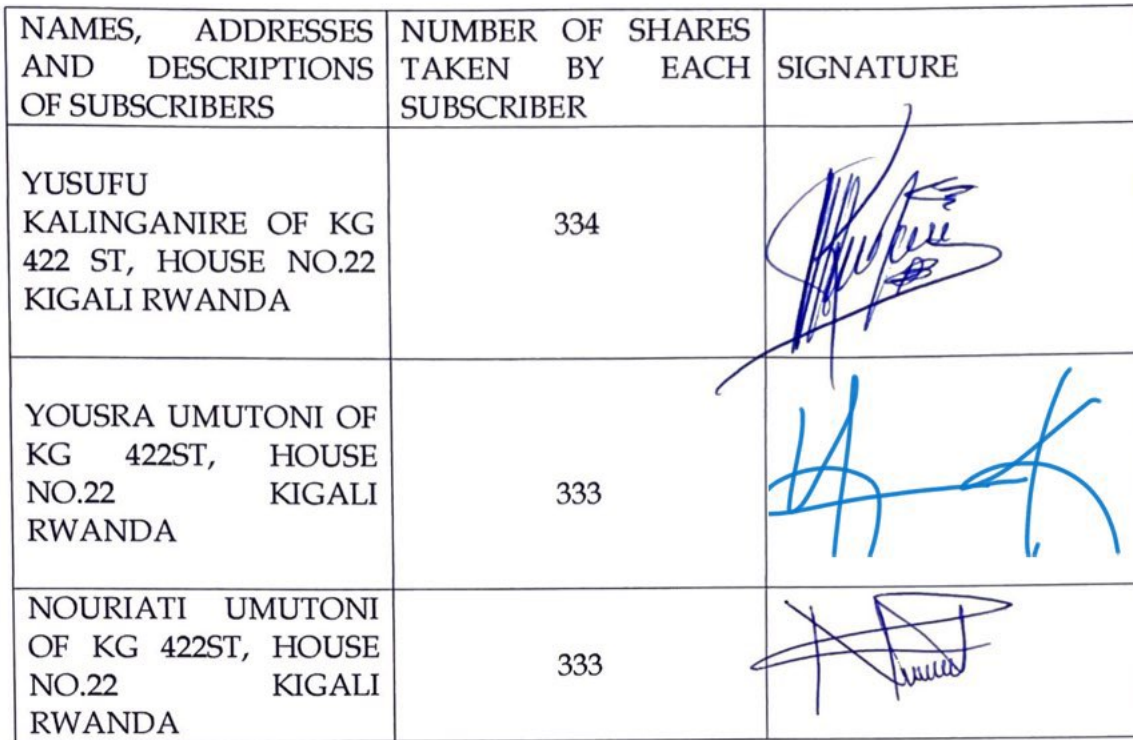 NAMES, ADDRESSES
AND DESCRIPTIONS
OF SUBSCRIBERS
NUMBER OF SHARES
TAKEN BY EACH
SUBSCRIBER
SIGNATURE
YUSUFU
KALINGANIRE OF KG
422 ST, HOUSE NO.22
KIGALI RWANDA
334
YOUSRA UMUTONI OF
KG 422ST, HOUSE
NO.22 KIGALI
RWANDA
333
NOURIATI UMUTONI
OF KG 422ST, HOUSE
NO.22 KIGALI
RWANDA
333